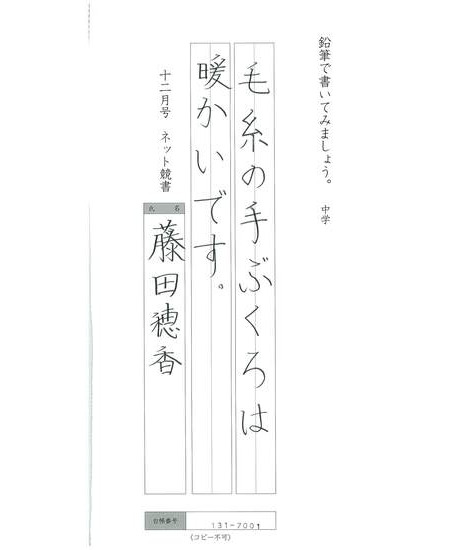 鉛筆で書いてみましょう。　中学
毛糸の手ぶくろは
暖かいです。
十二月号　ネット競書
氏　名
藤田穂香
台帳番号
131-7001
(コピー不可)